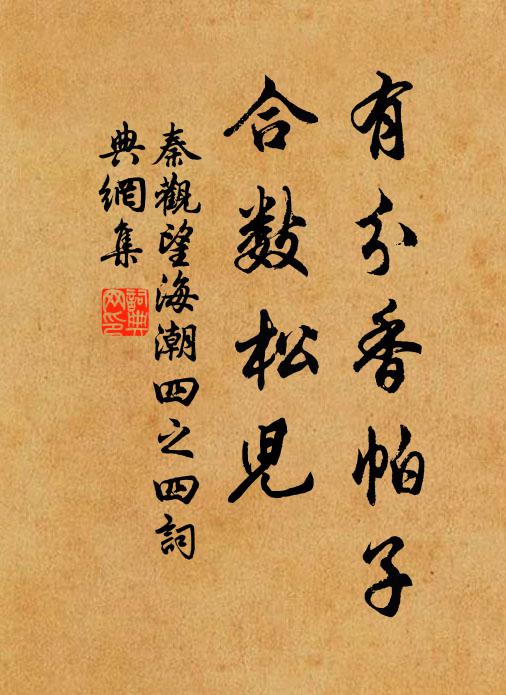 有分香帕子
合數松兒
秦觀望海潮四之四詞
典網集
詞典
网印